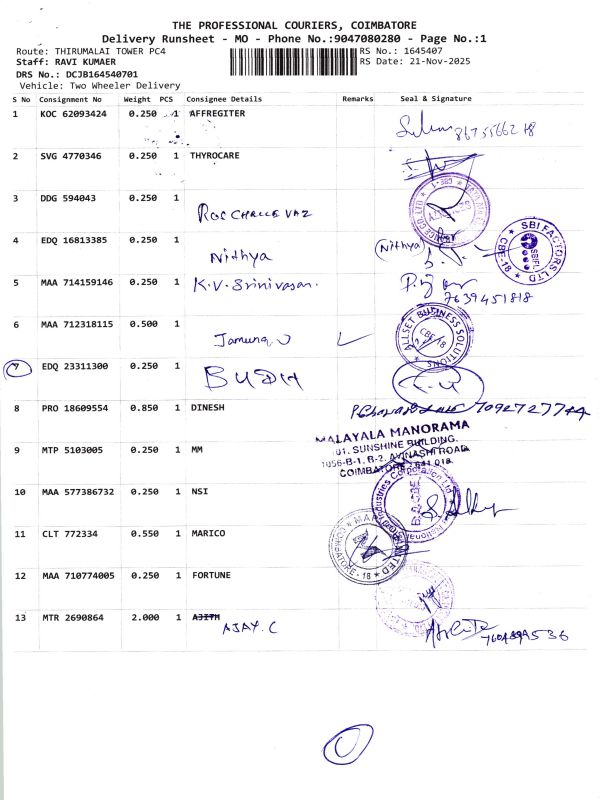 THE PROFESSIONAL COURIERS, COIMBATORE
Delivery Runsheet - MO - Phone No.:9047080280 - Page No.:1
Route: THIRUMALAI TOWER PC4 RS No.: 1645407
Staff: RAVI KUMAER RS Date: 21-Nov-2025
DRS No.: DCJB164540701
Vehicle: Two Wheeler Delivery
S No Consignment No Weight PCS Consignee Details Remarks Seal & Signature
1 KOC 62093424 0.250 1 AFFREGITER
2 SVG 4770346 0.250 1 THYROCARE
3 DDG 594043 0.250 1
4 EDQ 16813385 0.250 1 Nithya (Nithya)
SBI FACTORS LTD CBE-18
5 MAA 714159146 0.250 1 K.V. Srinivasan.
7639451818
6 MAA 712318115 0.500 1 Jamuna
ALLSET BUSINESS SOLUTIONS CBE-18
7 EDQ 23311300 0.250 1
8 PRO 18609554 0.850 1 DINESH 7092727744
MALAYALA MANORAMA
101, SUNSHINE BUILDING,
1056-B-1, B-2, AVINASHI ROAD,
COIMBATORE - 641 018.
9 MTP 5103005 0.250 1 MM
10 MAA 577386732 0.250 1 NSI
11 CLT 772334 0.550 1 MARICO
12 MAA 710774005 0.250 1 FORTUNE
13 MTR 2690864 2.000 1 AJITH
AJAY. C